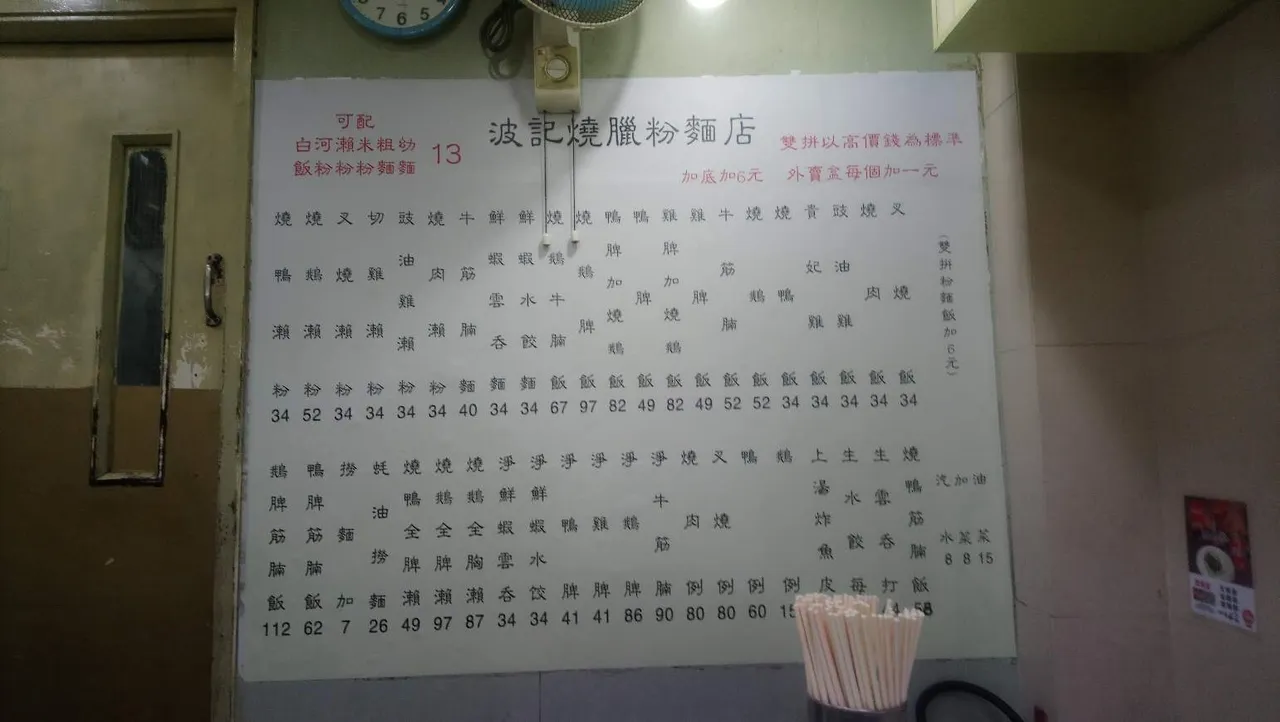 7 6 5
波記燒臘粉麵店
可配
白河瀨米粗幼
飯粉粉粉麵麵
13
雙拼以高價錢為標準
加底加6元 外賣盒每個加一元
燒鴨瀨粉 34
燒鵝瀨粉 52
叉燒瀨粉 34
切雞瀨粉 34
豉油雞瀨粉 34
燒肉瀨粉 34
牛筋腩麵 40
鮮蝦雲吞麵 34
鮮蝦水餃麵 34
燒鵝牛腩飯 67
燒鵝脾飯 97
鴨脾加燒鵝飯 82
鴨脾飯 49
雞脾加燒鵝飯 82
雞脾飯 49
牛筋腩飯 52
燒鵝飯 52
燒鴨飯 34
貴妃雞飯 34
豉油雞飯 34
燒肉飯 34
叉燒飯 34
(雙拼粉麵飯加6元)
鵝脾筋腩飯 112
鴨脾筋腩飯 62
撈麵加 7
蚝油撈麵 26
燒鴨全脾瀨 49
燒鵝全脾瀨 97
燒鵝全胸瀨 87
淨鮮蝦雲吞 34
淨鮮蝦水饺 34
淨鴨脾 41
淨雞脾 41
淨鵝脾 86
淨牛筋腩 90
燒肉例 80
叉燒例 80
鴨例 60
鵝例
上湯炸魚皮
生水餃每
生雲吞打
燒鴨筋腩飯 58
汽水 8
加菜 8
油菜 15